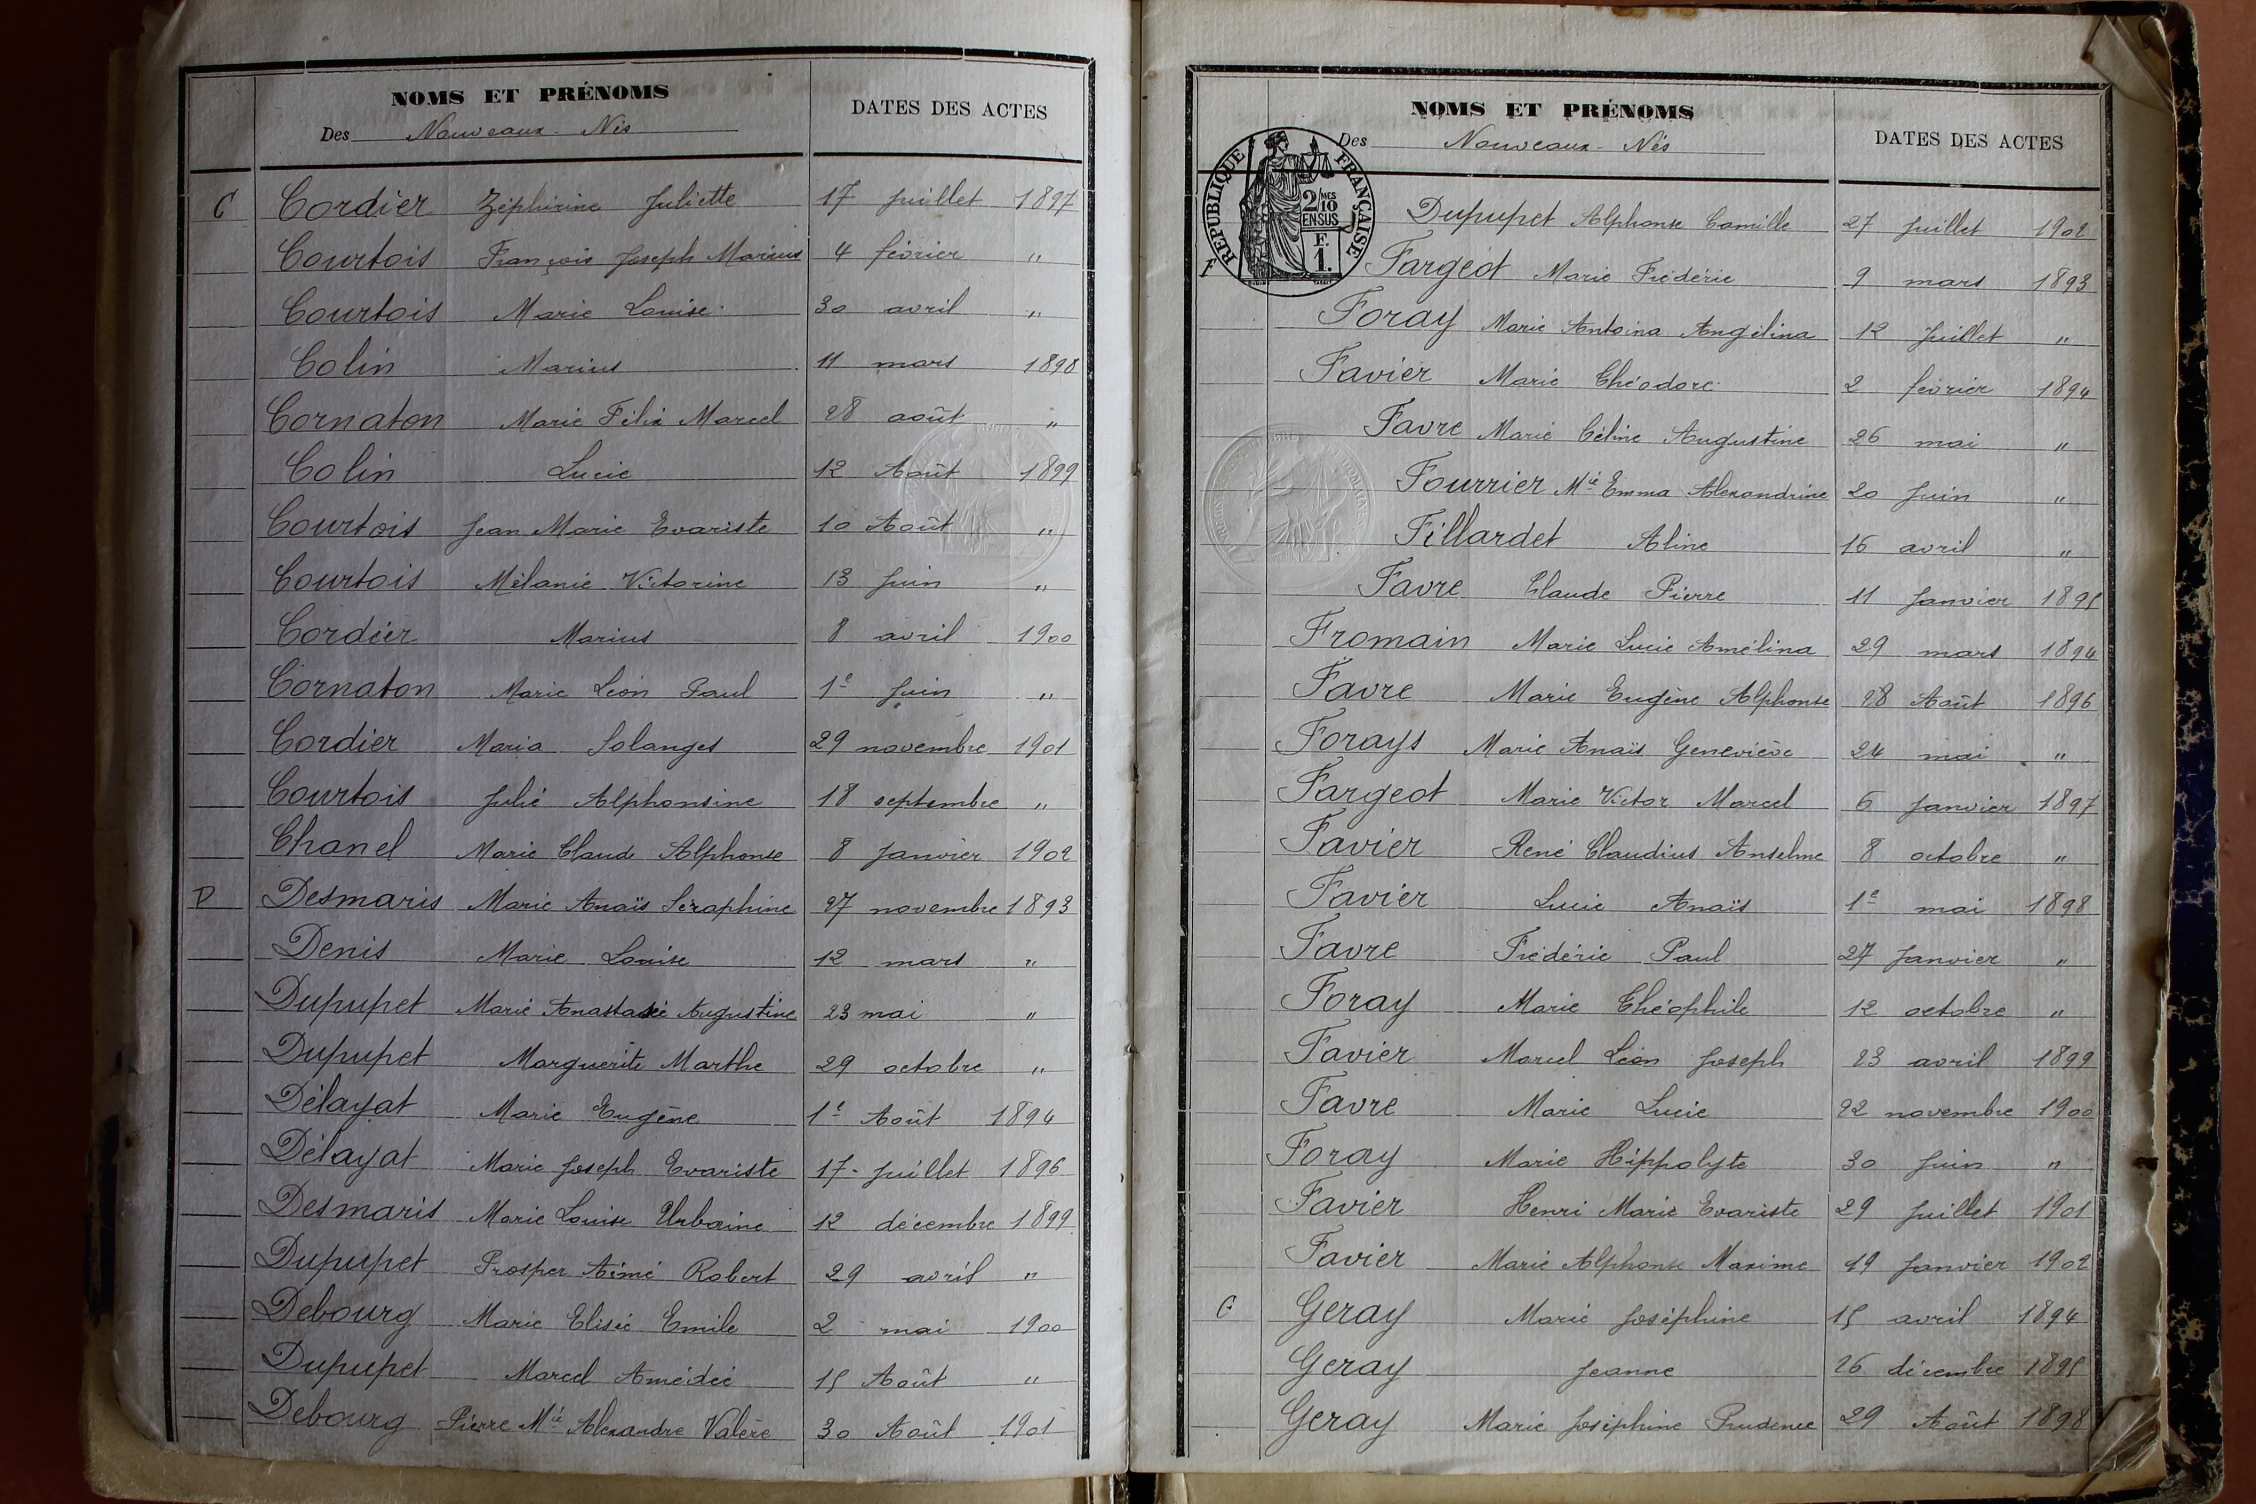 NOMS ET PRÉNOMS
DATES DES ACTES
Des Nouveaux-Nés
C Cordier Zéphirine Juliette 17 juillet 1897
Courtois François Joseph Marius 4 février "
Courtois Marie Louise 30 avril "
Colin Marius 11 mars 1898
Cornaton Marie Félix Marcel 28 août "
Colin Lucie 12 Août 1899
Courtois Jean Marie Evariste 10 Août "
Courtois Mélanie Victorine 13 Juin "
Cordier Marius 8 avril 1900
Cornaton Marie Léon Paul 1e Juin "
Cordier Maria Solanges 29 novembre 1901
Courtois Julie Alphonsine 18 septembre "
Chanel Marie Claude Alphonse 8 Janvier 1902
D Desmaris Marie Anaïs Séraphine 27 novembre 1893
Denis Marie Louise 12 mars "
Dupupet Marie Anastasie Augustine 23 mai "
Dupupet Marguerite Marthe 29 octobre "
Délayat Marie Eugène 1e Août 1894
Délayat Marie Joseph Evariste 17 Juillet 1896
Desmaris Marie Louise Urbaine 12 décembre 1899
Dupupet Prosper Aimé Robert 29 avril "
Debourg Marie Elisée Emile 2 mai 1900
Dupupet Marcel Amédée 15 Août "
Debourg Pierre Mie Alexandre Valère 30 Août 1901
NOMS ET PRÉNOMS
DATES DES ACTES
Des Nouveaux-Nés
RÉPUBLIQUE FRANÇAISE
2/10 MES
EN SUS
F.
1.
Dupupet Alphonse Camille 27 Juillet 1902
F Fargeot Marie Frédéric 9 mars 1893
Foray Marie Antoina Angélina 12 Juillet "
Favier Marie Théodore 2 février 1894
Favre Marie Céline Augustine 26 mai "
Fourrier Mie Emma Alexandrine 20 Juin "
Fillardet Aline 16 avril "
Favre Claude Pierre 11 Janvier 1895
Fromain Marie Lucie Amélina 29 mars 1894
Favre Marie Eugène Alphonse 28 Août 1896
Forays Marie Anaïs Geneviève 24 mai "
Fargeot Marie Victor Marcel 6 Janvier 1897
Favier René Claudius Anselme 8 octobre "
Favier Lucie Anaïs 1e mai 1898
Favre Frédéric Paul 27 Janvier "
Foray Marie Théophile 12 octobre "
Favier Marcel Léon Joseph 23 avril 1899
Favre Marie Lucie 22 novembre 1900
Foray Marie Hippolyte 30 Juin "
Favier Henri Marie Evariste 29 Juillet 1901
Favier Marie Alphonse Maxime 19 Janvier 1902
G Geray Marie Joséphine 15 avril 1894
Geray Jeanne 26 décembre 1895
Geray Marie Joséphine Prudence 29 Août 1898